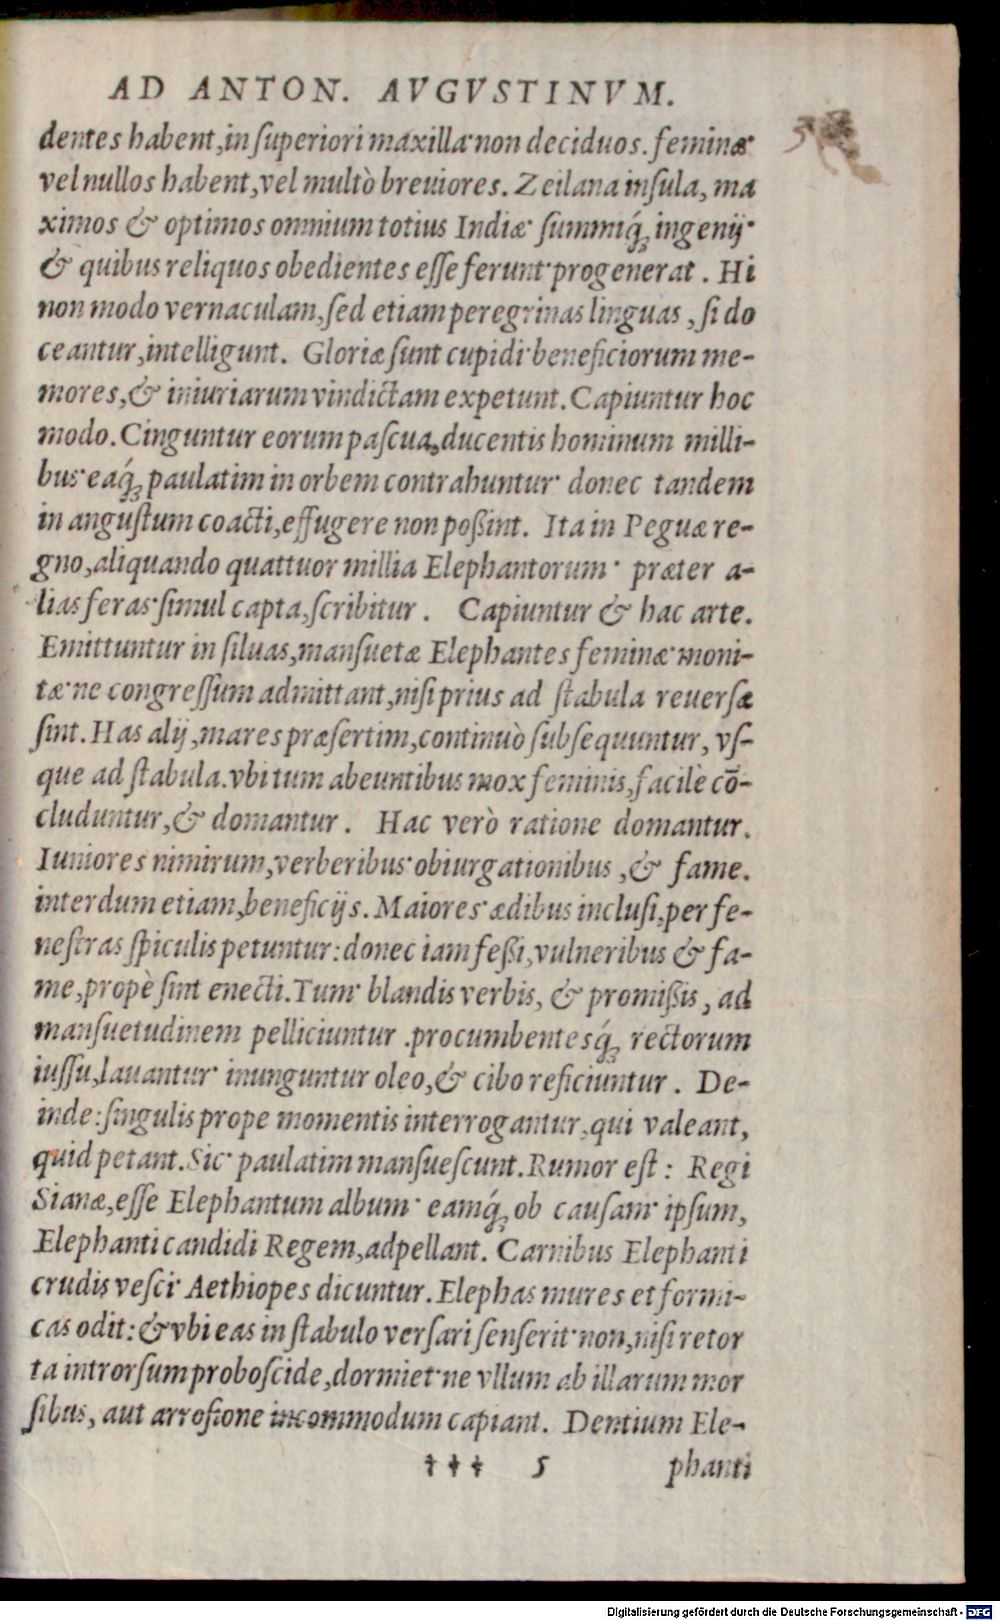 AD ANTON. AVGVSTINVM.
dentes habent, in ſuperiori maxilla· non deciduos. feminæ·
vel nullos habent, vel multò breuiores. Zeilana inſula, ma
ximos & optimos omnium totius Indiæ· ſummiq́; ingenij·
& quibus reliquos obedientes eſſe ferunt· progenerat. Hi
non modo vernaculam, ſed etiam peregrinas linguas, ſi do
ceantur, intelligunt. Gloriæ ſunt cupidi· beneficiorum me-
mores, & iniuriarum vindictam expetunt. Capiuntur hoc
modo. Cinguntur eorum paſcua, ducentis hominum milli-
bus· eaq́; paulatim in orbem contrahuntur· donec tandem
in anguſtum coacti, effugere non poßint. Ita in Peguæ re-
gno, aliquando quattuor millia Elephantorum· præter a-
lias feras· ſimul capta, ſcribitur. Capiuntur & hac arte.
Emittuntur in ſiluas, manſuetæ Elephantes feminæ· moni-
tæ· ne congreſſum admittant, niſi prius ad ſtabula reuerſæ
ſint. Has alij, mares præſertim, continuò ſubſequuntur, vſ-
que ad ſtabula. vbi tum abeuntibus mox feminis, facilè cō-
cluduntur, & domantur. Hac verò ratione domantur.
Iuniores nimirum, verberibus· obiurgationibus, & fame.
interdum etiam, beneficijs. Maiores· ædibus incluſi, per fe-
neſtras ſpiculis petuntur: donec iam feßi, vulneribus & fa-
me, propè ſint enecti. Tum· blandis verbis, & promißis, ad
manſuetudinem pelliciuntur. procumbentesq́; rectorum
iuſſu, lauantur· inunguntur oleo, & cibo reficiuntur. De-
inde: ſingulis prope momentis interrogantur, qui valeant,
quid petant. Sic· paulatim manſueſcunt. Rumor eſt: Regi
Sianæ, eſſe Elephantum album· eamq́; ob cauſam· ipſum,
Elephanti candidi Regem, adpellant. Carnibus Elephanti
crudis veſci· Aethiopes dicuntur. Elephas mures et formi-
cas odit: & vbi eas in ſtabulo verſari ſenſerit· non, niſi retor
ta introrſum proboſcide, dormiet· ne vllum ab illarum mor
ſibus, aut arroſione incommodum capiant. Dentium Ele-
††† 5 phanti
Digitalisierung gefördert durch die Deutsche Forschungsgemeinschaft - DFG